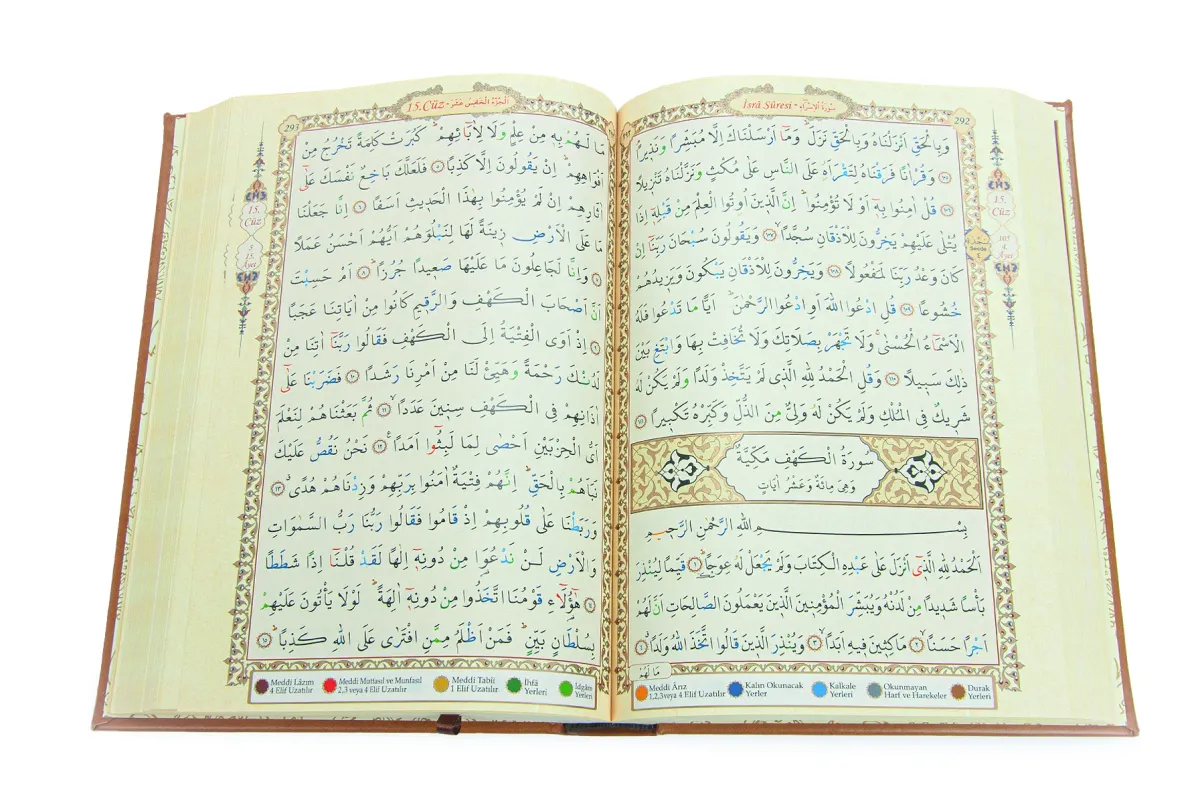 سُورَةُ الْاِسْرَاءِ - İsrâ Sûresi
292
وَبِالْحَقِّ اَنْزَلْنَاهُ وَبِالْحَقِّ نَزَلَۜ وَمَٓا اَرْسَلْنَاكَ اِلَّا مُبَشِّرًا وَنَذِيرًاۢ
﴿١٠٥﴾ وَقُرْاٰنًا فَرَقْنَاهُ لِتَقْرَاَهُ عَلَى النَّاسِ عَلٰى مُكْثٍ وَنَزَّلْنَاهُ تَنْزِيلًا
﴿١٠٦﴾ قُلْ اٰمِنُوا بِهٖٓ اَوْ لَا تُؤْمِنُواۜ اِنَّ الَّذٖينَ اُو۫تُوا الْعِلْمَ مِنْ قَبْلِهٖٓ اِذَا
يُتْلٰى عَلَيْهِمْ يَخِرُّونَ لِلْاَذْقَانِ سُجَّدًا ﴿١٠٧﴾ وَيَقُولُونَ سُبْحَانَ رَبِّنَٓا اِنْ
كَانَ وَعْدُ رَبِّنَا لَمَفْعُولًا ﴿١٠٨﴾ وَيَخِرُّونَ لِلْاَذْقَانِ يَبْكُونَ وَيَزِيدُهُمْ
خُشُوعًا ﴿١٠٩﴾ قُلِ ادْعُوا اللّٰهَ اَوِ ادْعُوا الرَّحْمٰنَۜ اَيًّا مَا تَدْعُوا فَلَهُ
الْاَسْمَٓاءُ الْحُسْنٰىۚ وَلَا تَجْهَرْ بِصَلَاتِكَ وَلَا تُخَافِتْ بِهَا وَابْتَغِ بَيْنَ
ذٰلِكَ سَبٖيلًا ﴿١١٠﴾ وَقُلِ الْحَمْدُ لِلّٰهِ الَّذٖي لَمْ يَتَّخِذْ وَلَدًا وَلَمْ يَكُنْ لَهُ
شَرٖيكٌ فِي الْمُلْكِ وَلَمْ يَكُنْ لَهُ وَلِيٌّ مِنَ الذُّلِّ وَكَبِّرْهُ تَكْبٖيرًا ﴿١١١﴾
سُورَةُ الْكَهْفِ مَكِّيَّةٌ
وَهِيَ مِائَةٌ وَعَشْرُ اٰيَاتٍ
بِسْمِ اللّٰهِ الرَّحْمٰنِ الرَّحٖيمِ
اَلْحَمْدُ لِلّٰهِ الَّذٖٓي اَنْزَلَ عَلٰى عَبْدِهِ الْكِتَابَ وَلَمْ يَجْعَلْ لَهُ عِوَجًاۜ ﴿١﴾ قَيِّمًا لِيُنْذِرَ
بَأْسًا شَدٖيدًا مِنْ لَدُنْهُ وَيُبَشِّرَ الْمُؤْمِنٖينَ الَّذٖينَ يَعْمَلُونَ الصَّالِحَاتِ اَنَّ لَهُمْ
اَجْرًا حَسَنًا ﴿٢﴾ مَاكِثٖينَ فٖيهِ اَبَدًا ﴿٣﴾ وَيُنْذِرَ الَّذٖينَ قَالُوا اتَّخَذَ اللّٰهُ وَلَدًا ﴿٤﴾
مَا لَهُمْ
15. Cüz
105
4. Âyet
Secde
Meddi Ârız 1,2,3 veya 4 Elif Uzatılır
Kalın Okunacak Yerler
Kalkale Yerleri
Okunmayan Harf ve Harekeler
Durak Yerleri
15. Cüz - اَلْجُزْءُ الْخَامِسَ عَشَرَ
293
مَا لَهُمْ بِهٖ مِنْ عِلْمٍ وَلَا لِاٰبَٓائِهِمْۜ كَبُرَتْ كَلِمَةً تَخْرُجُ مِنْ
اَفْوَاهِهِمْۜ اِنْ يَقُولُونَ اِلَّا كَذِبًا ﴿٥﴾ فَلَعَلَّكَ بَاخِعٌ نَفْسَكَ عَلٰٓى
اٰثَارِهِمْ اِنْ لَمْ يُؤْمِنُوا بِهٰذَا الْحَدٖيثِ اَسَفًا ﴿٦﴾ اِنَّا جَعَلْنَا
مَا عَلَى الْاَرْضِ زٖينَةً لَهَا لِنَبْلُوَهُمْ اَيُّهُمْ اَحْسَنُ عَمَلًا
﴿٧﴾ وَاِنَّا لَجَاعِلُونَ مَا عَلَيْهَا صَعٖيدًا جُرُزًاۜ ﴿٨﴾ اَمْ حَسِبْتَ
اَنَّ اَصْحَابَ الْكَهْفِ وَالرَّقٖيمِ كَانُوا مِنْ اٰيَاتِنَا عَجَبًا
﴿٩﴾ اِذْ اَوَى الْفِتْيَةُ اِلَى الْكَهْفِ فَقَالُوا رَبَّنَٓا اٰتِنَا مِنْ
لَدُنْكَ رَحْمَةً وَهَيِّئْ لَنَا مِنْ اَمْرِنَا رَشَدًا ﴿١٠﴾ فَضَرَبْنَا عَلٰٓى
اٰذَانِهِمْ فِي الْكَهْفِ سِنٖينَ عَدَدًا ﴿١١﴾ ثُمَّ بَعَثْنَاهُمْ لِنَعْلَمَ
اَيُّ الْحِزْبَيْنِ اَحْصٰى لِمَا لَبِثُٓوا اَمَدًا ﴿١٢﴾ نَحْنُ نَقُصُّ عَلَيْكَ
نَبَاَهُمْ بِالْحَقِّۜ اِنَّهُمْ فِتْيَةٌ اٰمَنُوا بِرَبِّهِمْ وَزِدْنَاهُمْ هُدًىۗ ﴿١٣﴾
وَرَبَطْنَا عَلٰى قُلُوبِهِمْ اِذْ قَامُوا فَقَالُوا رَبُّنَا رَبُّ السَّمٰوَاتِ
وَالْاَرْضِ لَنْ نَدْعُوَ۬ا مِنْ دُونِهٖٓ اِلٰهًا لَقَدْ قُلْنَٓا اِذًا شَطَطًا
﴿١٤﴾ هٰٓؤُ۬لَٓاءِ قَوْمُنَا اتَّخَذُوا مِنْ دُونِهٖٓ اٰلِهَةًۜ لَوْلَا يَأْتُونَ عَلَيْهِمْ
بِسُلْطَانٍ بَيِّنٍۜ فَمَنْ اَظْلَمُ مِمَّنِ افْتَرٰى عَلَى اللّٰهِ كَذِبًاۜ ﴿١٥﴾
15. Cüz
5
15. Âyet
Meddi Lâzım 4 Elif Uzatılır
Meddi Muttasıl ve Munfasıl 2,3 veya 4 Elif Uzatılır
Meddi Tabiî 1 Elif Uzatılır
İhfâ Yerleri
İdğâm Yerleri